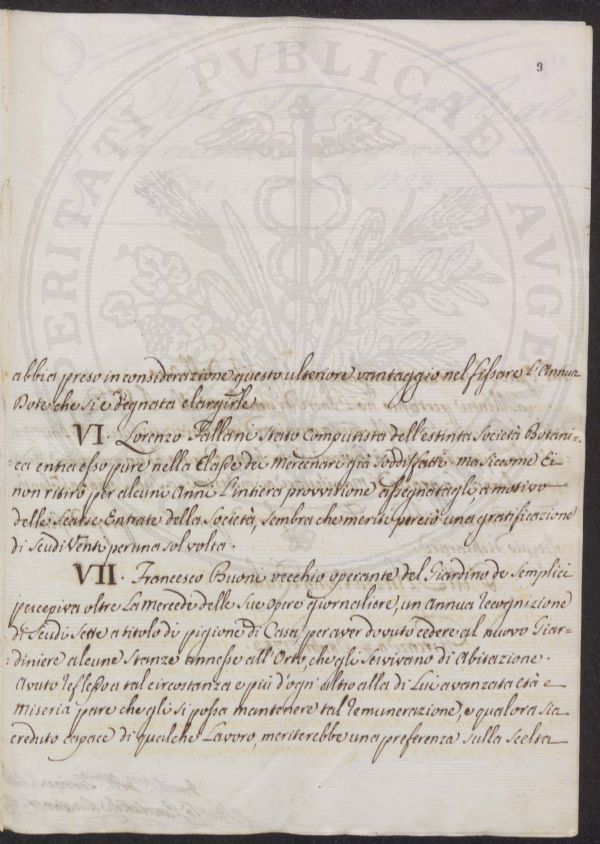 9
PROSPERITATI PVBLICAE AVGENDAE
abbia preso in considerazione questo ulteriore vantaggio nel fissare l'Annua
Dote che si è degnata elargirle
VI. Lorenzo Pallani stato Computista dell'estinta Società Botani=
=ca entra esso pure nella Classe dei Mercenarj già soddisfatti ma siccome Ei
non ritirò per alcuni Anni l'intiera provvisione assegnatagli, a motivo
delle scarse Entrate della Società, sembra che meriti perciò una gratificazione
di Scudi Venti per una sol volta.
VII. Francesco Buoni vecchio operante del Giardino de Semplici
percepiva oltre la Mercede delle sue opere giornaliere, un Annua recognizione
di Scudi Sette a titolo di pigione di Casa, per aver dovuto cedere al nuovo Giar=
=diniere alcune stanze annesse all'Orto, che gli servivano di Abitazione.
Avuto reflesso a tal circostanza e più d'ogni altro alla di Lui avanzata età e
miseria pare che gli si possa mantenere tal remunerazione, e qualora sia
creduto capace di qualche Lavoro, meriterebbe una preferenza sulla scelta